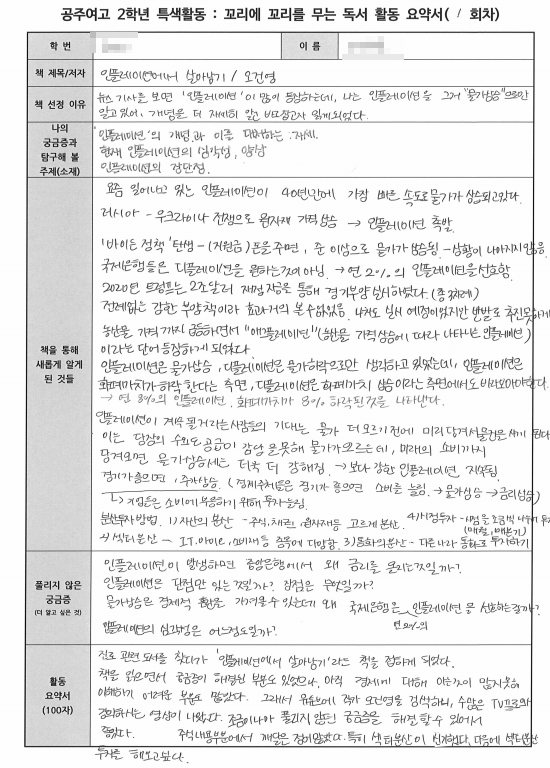 공주여고 2학년 특색활동 : 꼬리에 꼬리를 무는 독서 활동 요약서( / 회차)
학 번
이 름
책 제목/저자
인플레이션에서 살아남기 / 오건영
책 선정 이유
뉴스 기사를 보면 '인플레이션'이 많이 등장하는데, 나는 인플레이션을 그저 "물가상승"으로만
알고 있어, 개념을 더 자세히 알고 싶어 읽게되었다.
나의
궁금증과
탐구해 볼
주제(소재)
'인플레이션'의 개념과 이를 대하는 자세.
현재 인플레이션의 심각성, 양상
인플레이션의 장단점.
책을 통해
새롭게 알게
된 것들
요즘 일어나고 있는 인플레이션이 40년만에 가장 빠른 속도로 물가가 상승되고있다.
러시아 - 우크라이나 전쟁으로 원자재 가격상승 → 인플레이션 촉발.
'바이든 정책' 탄생 - (지원금) 돈을 주면, 준 이상으로 물가가 상승됨 - 상황이 나아지지않음
국제은행들은 디플레이션을 원하는것이 아님. → 연 2%의 인플레이션을 선호함.
2020년 트럼프는 2조달러 재정지출을 통해 경기부양 실시하였다. (총 3차례)
전례없는 강한 부양책이라 효과거의 볼수없었음.
농산물 가격까지 급등하면서 "애그플레이션"(농산물 가격상승에 따라 나타나는 인플레이션)
이라는 단어 등장하게 되었다.
인플레이션은 물가상승, 디플레이션은 물가하락으로만 생각하고 있었는데, 인플레이션은
화폐가치가 하락한다는 측면, 디플레이션은 화폐가치 상승이라는 측면에서도 바라보아야한다.
→ 연 8%의 인플레이션. 화폐가치가 8% 하락된것을 나타낸다.
인플레이션이 계속 될거라는 사람들의 기대는 물가 더 오르기 전에 미리 당겨서 물건을 사게 된다
이는 당장의 수요는 공급이 감당을 못해 물가가 오르는데, 미래의 소비까지
당겨오면 물가상승세는 더욱 더 강해짐. → 보다 강한 인플레이션 지속됨.
경기가 좋으면, 주가상승. (경제주체들은 경기가 좋으면 소비를 늘림. → 물가상승 → 금리상승)
↳ 기업들은 소비에 부응하기 위해 투자 늘림.
분산투자 방법. 1) 자산의 분산 - 주식, 채권, 원자재 등 고르게 분산. 4) 시점투자 - 시점을 조금씩 나누어 투자
(매월, 매분기)
2) 섹터분산 - IT, 바이오, 소비재 등 종목에 다양함. 3) 통화의 분산 - 다른 나라 통화로 투자하기
풀리지 않은
궁금증
(더 알고 싶은 것)
인플레이션이 발생하면 중앙은행에서 왜 금리를 올리는것일까?
인플레이션은 단점만 있는것일까? 장점은 무엇일까?
물가상승은 경제적 혼란을 가져올 수 있는데 왜 국제은행은 인플레이션을 선호하는걸까?
연 2%의
인플레이션의 심각성은 어느정도일까?
활동
요약서
(100자)
진로 관련 도서를 찾다가 '인플레이션에서 살아남기'라는 책을 접하게 되었다.
책을 읽으면서 궁금증이 해결된 부분도 있었으나, 아직 경제에 대해 아는것이 많지않음
이해하기 어려운 부분도 많았다. 그래서 유튜브에 작가 오건영을 검색하니, 수많은 TV프로와
강의하시는 영상이 나왔다. 조금이나마 풀리지 않던 궁금증을 해결할 수 있어서
좋았다. 주식내용부분에서 깨달은 점이 많았다. 특히 섹터분산이 신기했다. 다음에 섹터분산
투자를 해보고싶다.